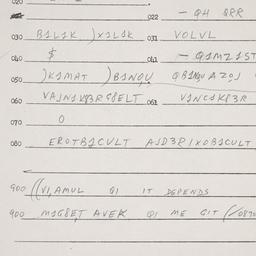 020
022 - QH QRR
030 B1L1K )X1L1K 031 VOLVL
040 $ 041 - Q1MZ1ST
050 )K1MAT )B1NQU
060 VAJN1K83RG8ELT 061 V1NC1K83R
070 O
080 EROTB1CULT AJD3R1XOB1CULT
900 ((VI,AMUL QI IT DEPENDS
900 M1G8ET AVEK QI ME GIT (/0870